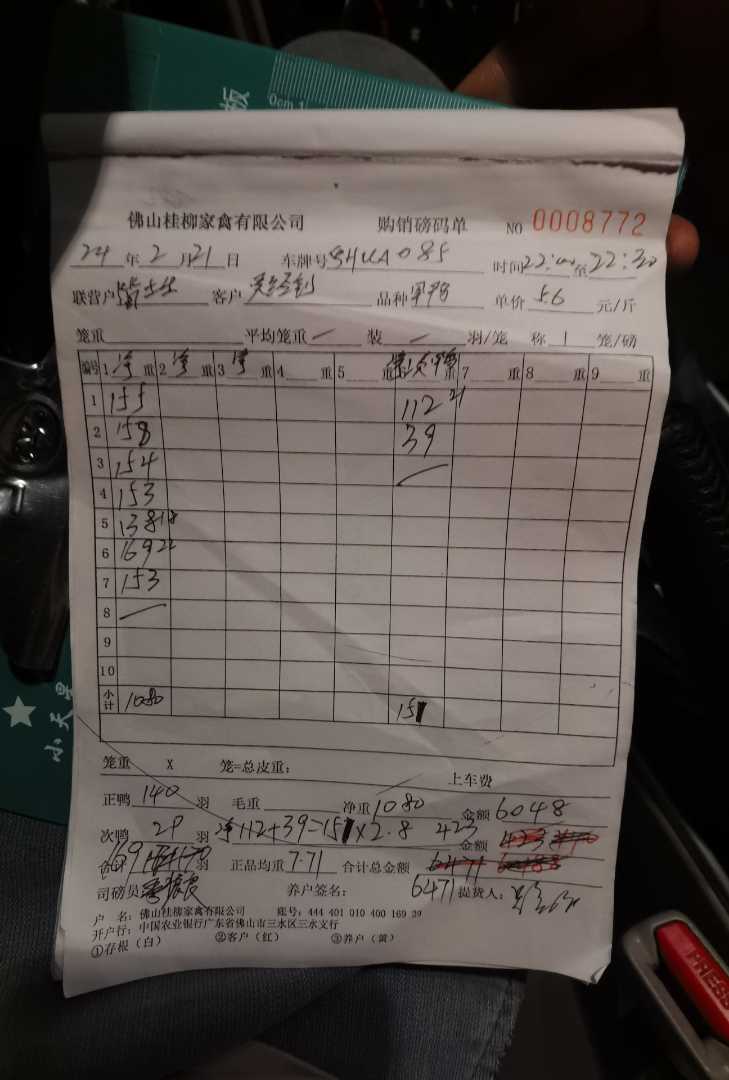 板
0cm 1
佛山桂柳家禽有限公司 购销磅码单 NO 0008772
24 年 2 月 21 日 车牌号 085 时间 22: 至 22:30
联营户 客户 品种 单价 5.6 元/斤
笼重 平均笼重 / 装 / 羽/笼 称 1 笼/磅
编号 1 净 重 2 净 重 3 净 重 4 重 5 重 重 7 重 8 重 9 重
1 155 112 21
2 158 39
3 154 /
4 153
5 138 18
6 169 22
7 153
8 /
9
10
小计 1080 151
笼重 X 笼=总皮重: 上车费
正鸭 140 羽 毛重 净重 1080 金额 6048
次鸭 29 羽 净112+39=151×2.8 423 金额
合计 169 羽 正品均重 7.71 合计总金额 6471
司磅员 养户签名: 6471 提货人:
户 名: 佛山桂柳家禽有限公司 账号: 444 401 010 400 169 29
开户行: 中国农业银行广东省佛山市三水区三水支行
①存根（白） ②客户（红） ③养户（黄）
小天星
PRESS